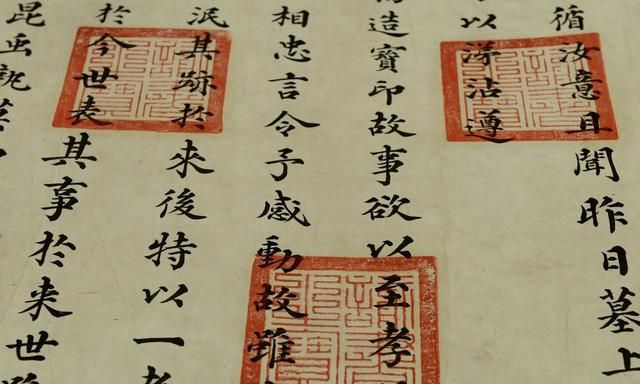 循汝意且聞昨日墓上
以沾遵
造寶印故事欲以至孝
相忠言令予感動故雖
泯其跡於來後特以一
於今世表其事於来世
昆